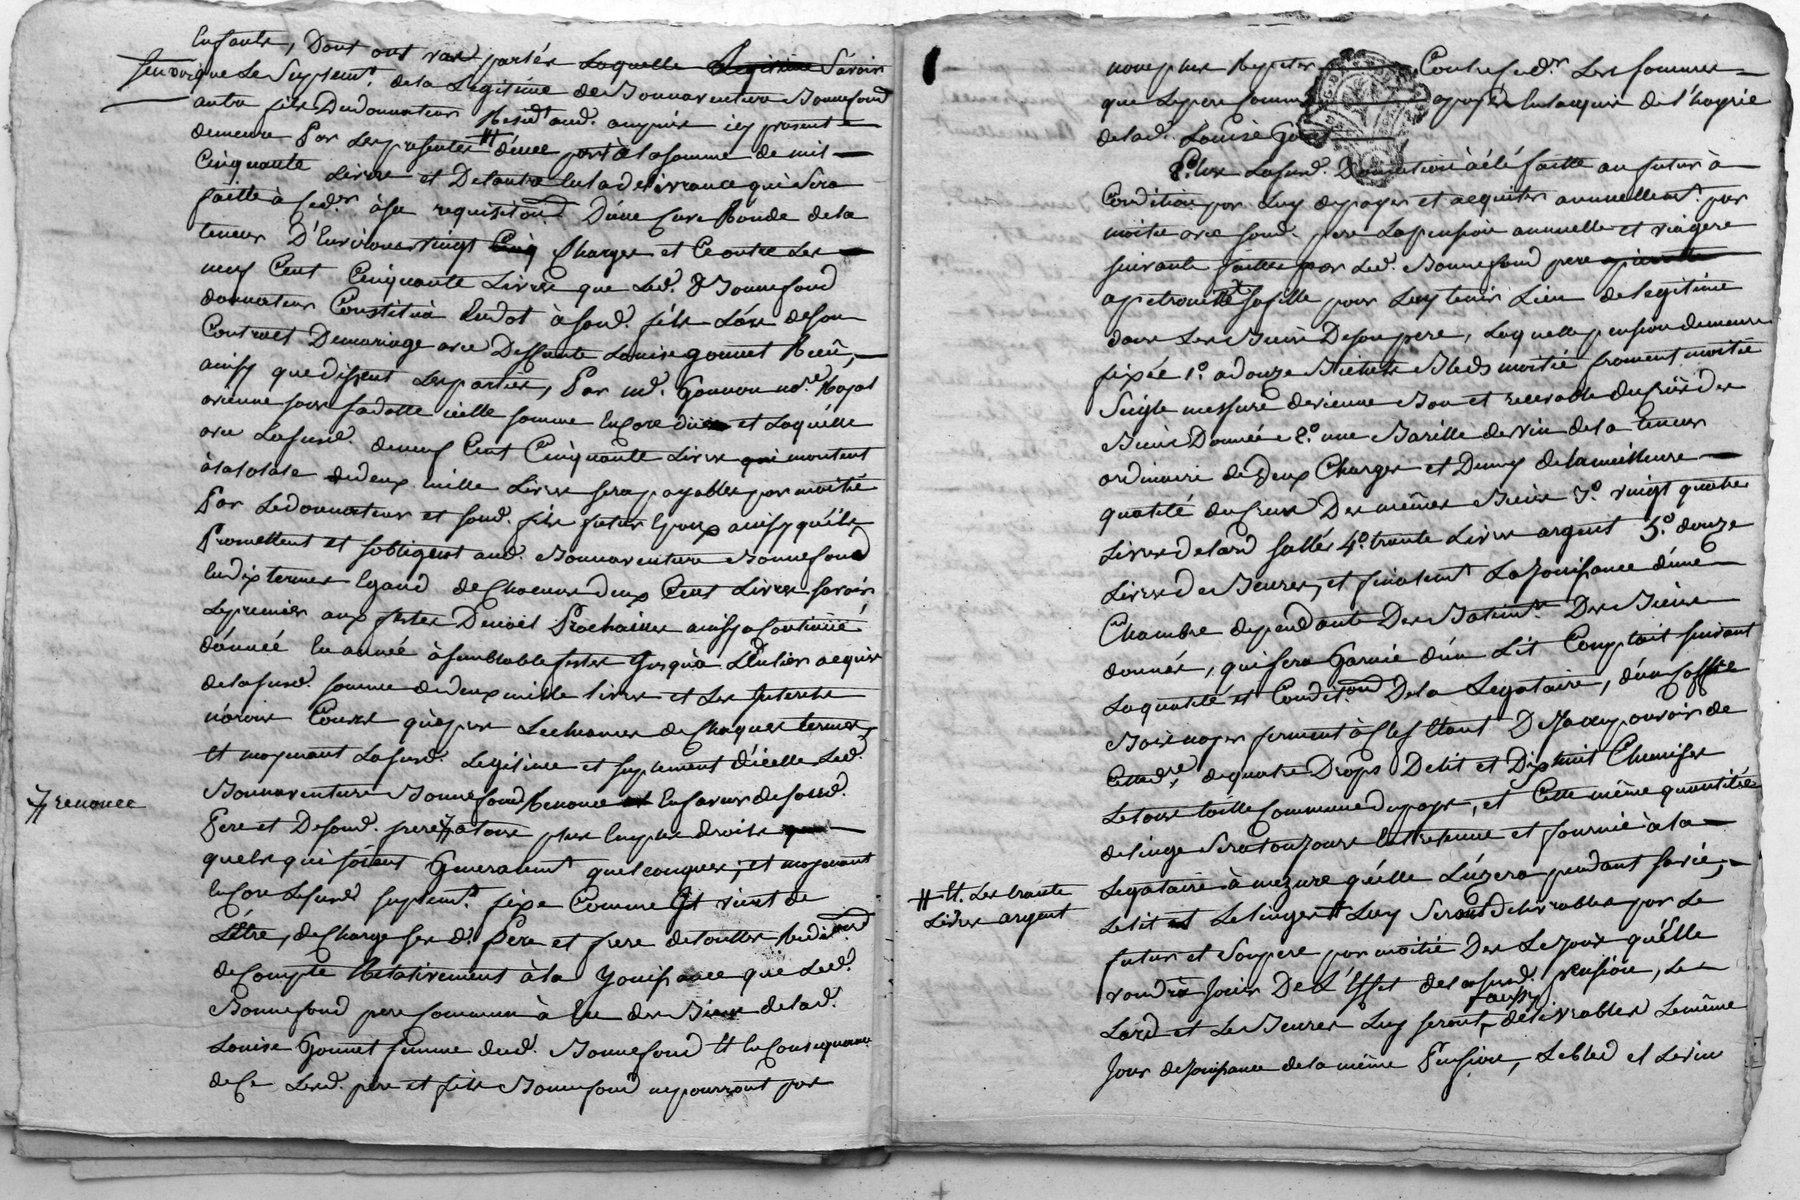 Enfants, Dont ont parties Laquelle Legitime Savoir
que Le Suplemt. de la Legitime de Bonnaventure Bonnefond
autre fils Dudonnateur Residt. aud. ampuis icy present
demeure Par Les presentes # portè à la somme de mil
Cinquante Livres et De lautre En la delivrance qui Sera
faitte à sed. à sa requisitiond D'une Cuve Ronde de la
teneur D'Environ vingt Cinq Charges et Ce outre Les
neuf Cent Cinquante Livres que Led. Bonnefond
donnateur Constitua En dot à sond. fils Lors de son
Contract Demariage avec Deffunte Louise gonnet Reçû,
ainsy que disent Les parties, Par me. Gonnon nore. Royal
somme Encore düe et Laquelle
avec Lasusd. de neuf Cent Cinquante Livres qui montent
à la totale de deux mille Livres sera payable par moitié
Par Ledonnateur et sond. fils futur Epoux ainsy qu'ils
Promettent et sobligent aud. Bonnaventure Bonnefond
En dix termes Egaud de Chacuns deux Cent Livres savoir
Le premier aux festes De noël Prochaines ainsy a Continüé
d'année En année à semblable festes Jusqu'à Lentier acquis
de la susd. somme de deux mille livres et Les Interests
n'avoir Cours qu'apres Lecheance de Chaques termes,
Et moyenant La susd. Legitime et suplement d'icelle Led.
Bonnaventure Bonnefond Renonce En faveur de sond.
Pere et De sond. frere # a tous plus Emples droits
quels qui soient Generalemt. quelconques; et moyenant
Encore Lesusd. suplemt. fixe Comme Il vient de
L'Être, de Charge sesd. Pere et frere de touttes Reditiond
de Compte Relativement à la Jouissance que Led.
Bonnefond pere Commun à Eu des Biens de lad.
Louise Gonnet femme dud. Bonnefond Et En Consequence
de Ce Lesd. pere et fils Bonnefond ne pourront pas
# renonce
non plus Repeter Contre sed. Les sommes
que Le pere Commun a payés En lacquit de l'hoyrie
de lad. Louise Gonnet
Plus Lasusd. Donnation à été faitte au futur à
Condition par Luy de payer et acquitter annuellemt. par
moitié avec sond. pere La pension annuelle et viagere
suivante faitte par Led. Bonnefond pere
a petronille sa fille pour Luy tenir Lieu de legitime
dans Les Biens De son pere, Laquelle pension demeure
fixée 1.o a douze Bichets Bleds moitié froment moitié
Seigle messure de vienne Bon et recevable du Crüe des
Biens Donnés 2.o une Barille de vin de la teneur
ordinaire de deux Charges et Demy de la meilleure
qualité du Crüe Des mêmes Biens 3.o vingt quatre
Livres de lard sallés 4.o trente Livres argent 5.o douze
Livres de Beurre, et finalemt. La Jouissance d'une
Chambre dependante Des Batimts. Des Biens
donnés, qui sera Garnie d'un Lit Complait suivant
La qualité et Conditiond De la Legataire, d'un Coffre
Bois noyer ferment à Clef Etant Desja au pouvoir de
de quatre Draps De lit et Dix huit Chemises
Le tous toille Commune du pays, et Cette même quantitée
de linge Sera toujours Entretenue et fournie à la
Legataire à mezure qu'elle L'uzera pendant sa vie,
Le lit et Le linge # Luy Seront delivrables par Le
futur et Son pere par moitié Des Le jour qu'elle
voudra Jouir De L'Effet de la susd. pension, Le
Lard et Le Beurre Luy seront aussy delivrables Le même
Jour de jouissance de la même Pension, Le bled et Le vin
# Et. Les trante
Livres argent